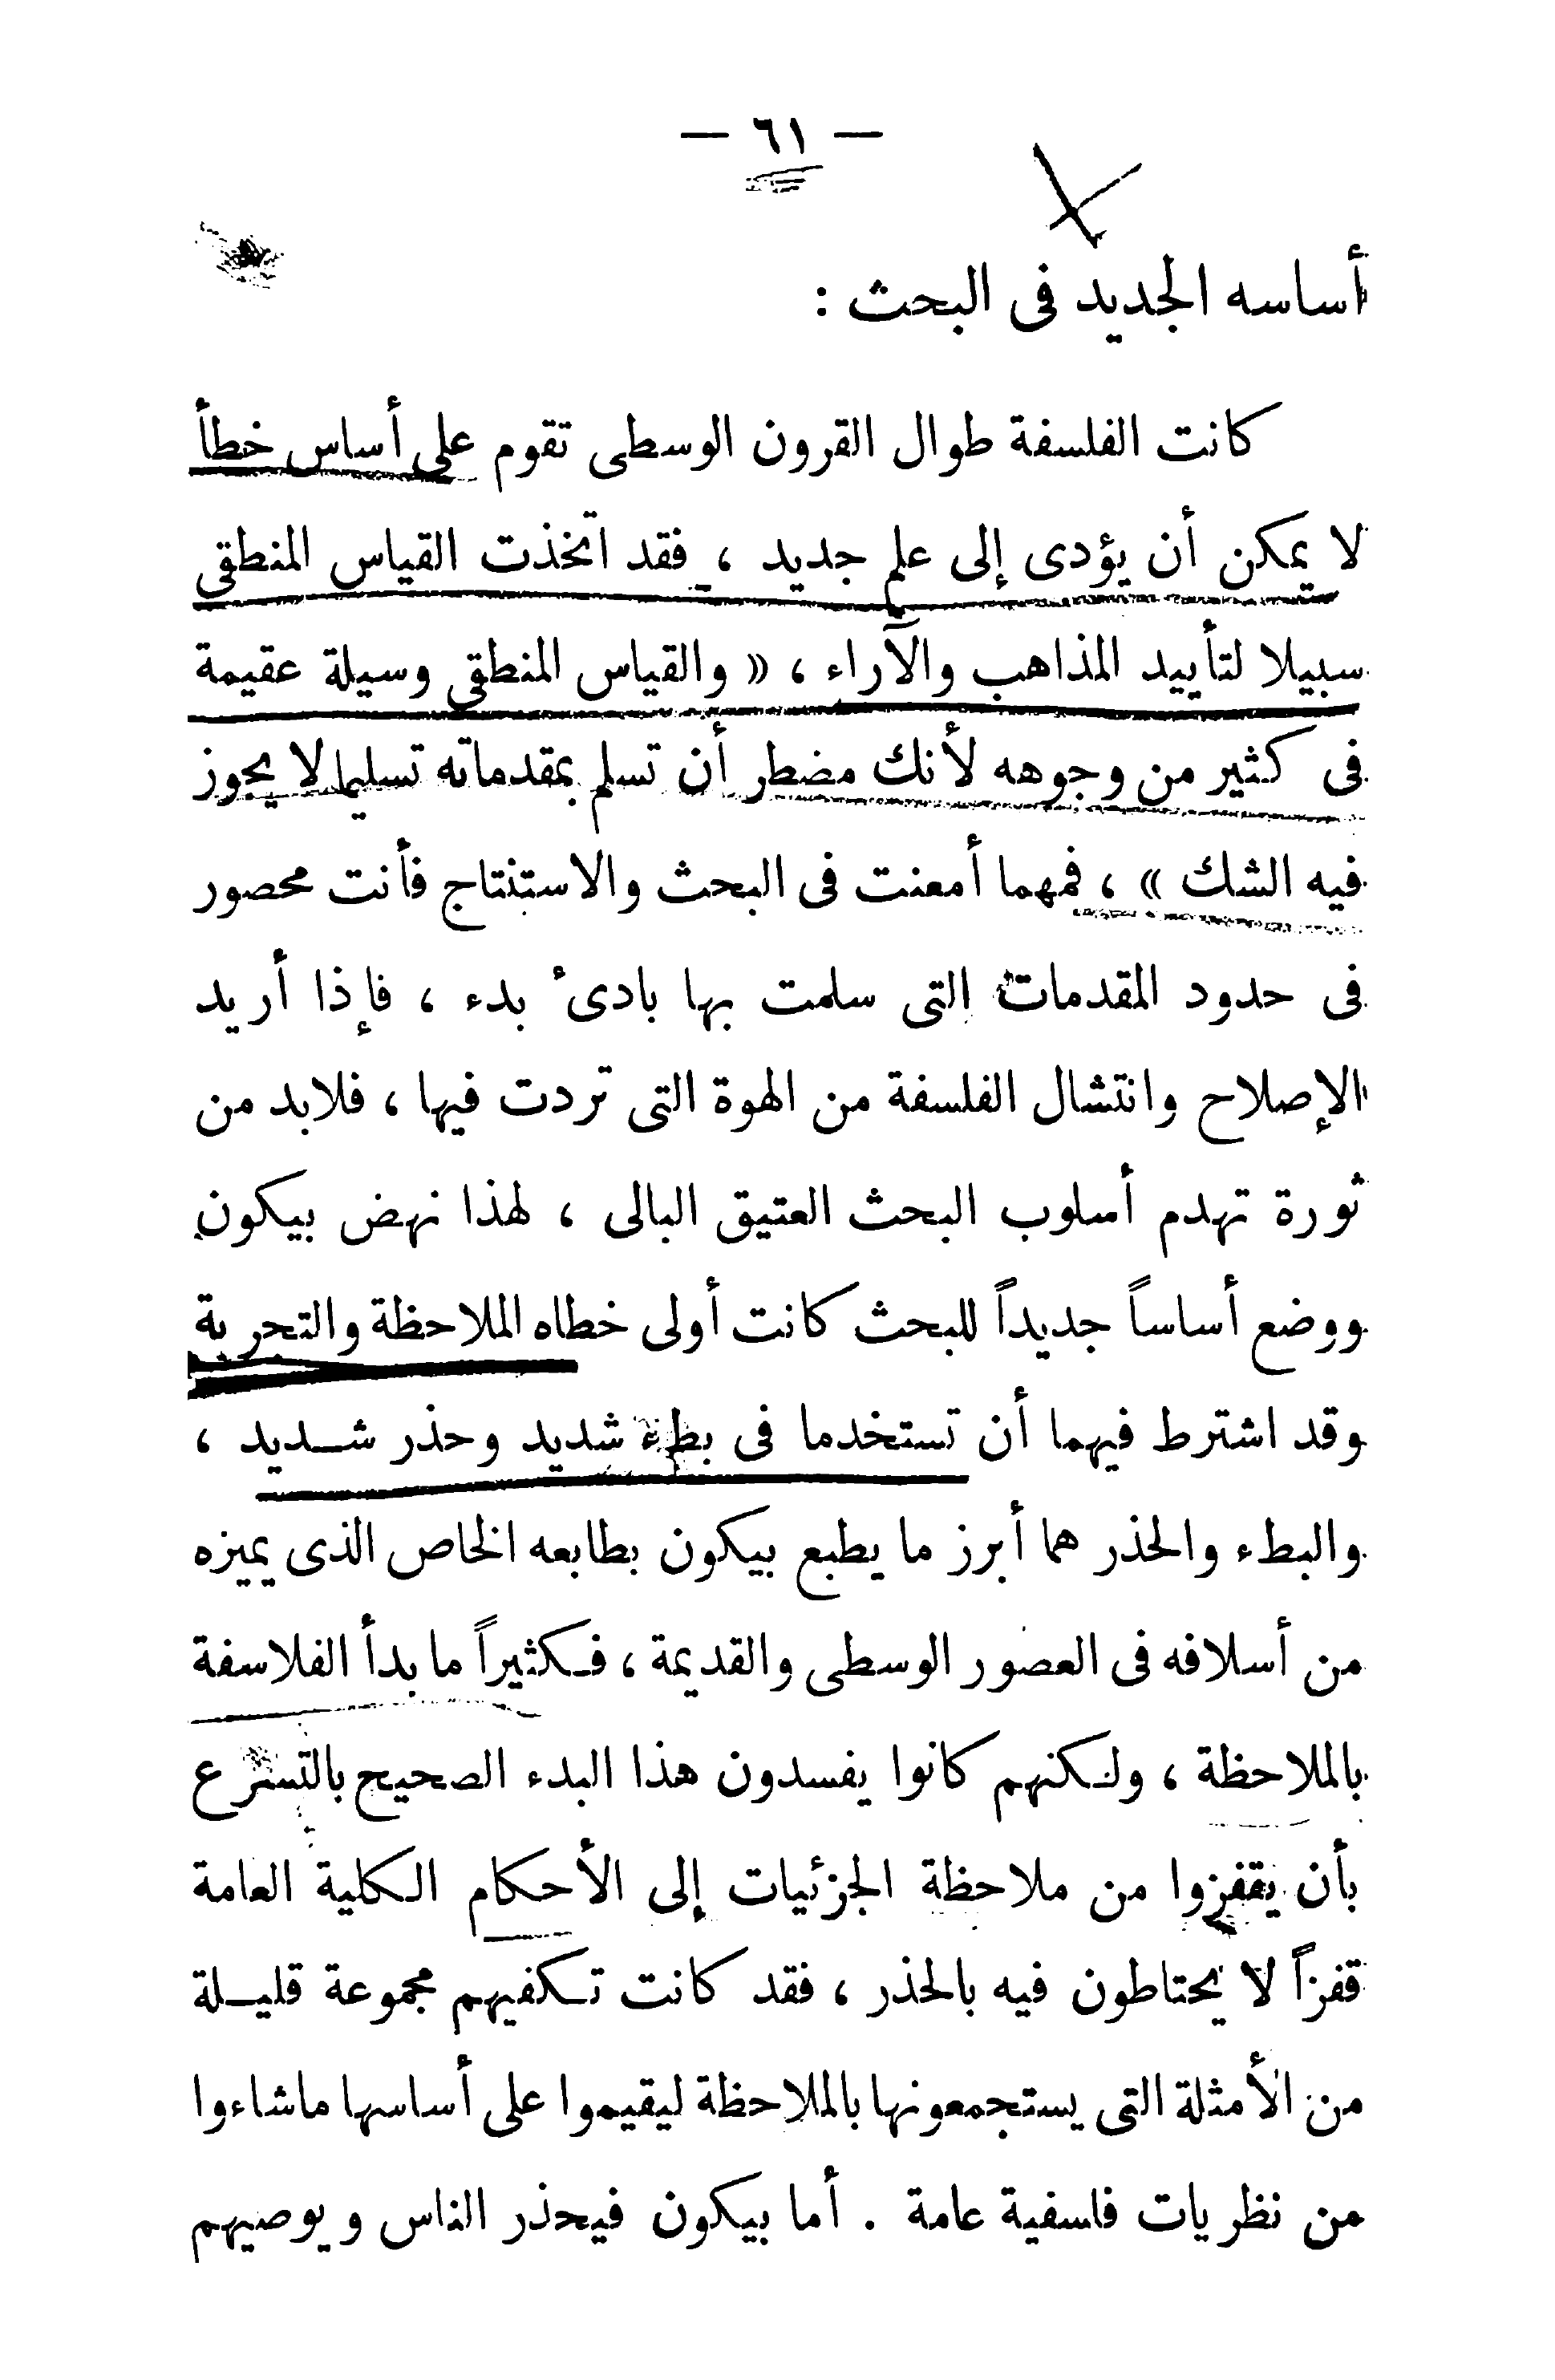 — ٦١ —
أساسه الجديد فى البحث :
كانت الفلسفة طوال القرون الوسطى تقوم على أساس خطأ
لا يمكن أن يؤدى إلى علم جديد ، فقد اتخذت القياس المنطقى
سبيلا لتأييد المذاهب والآراء ، « والقياس المنطقى وسيلة عقيمة
فى كثير من وجوهه لأنك مضطر أن تسلم بمقدماته تسليما لا يجوز
فيه الشك » ، فمهما أمعنت فى البحث والاستنتاج فأنت محصور
فى حدود المقدمات التى سلمت بها بادىء بدء ، فإذا أريد
الإصلاح وانتشال الفلسفة من الهوة التى تردت فيها ، فلابد من
ثورة تهدم أسلوب البحث العتيق البالى ، لهذا نهض بيكون
ووضع أساساً جديداً للبحث كانت أولى خطاه الملاحظة والتجربة
وقد اشترط فيهما أن تستخدما فى بطء شديد وحذر شـديد ،
والبطء والحذر هما أبرز ما يطبع بيكون بطابعه الخاص الذى يميزه
من أسلافه فى العصور الوسطى والقديمة ، فكثيراً ما بدأ الفلاسفة
بالملاحظة ، ولكنهم كانوا يفسدون هذا البدء الصحيح بالتسرع
بأن يقفزوا من ملاحظة الجزئيات إلى الأحكام الكلية العامة
قفزاً لا يحتاطون فيه بالحذر ، فقد كانت تكفيهم مجموعة قليـلة
من الأمثلة التى يستجمعونها بالملاحظة ليقيموا على أساسها ماشاءوا
من نظريات فلسفية عامة . أما بيكون فيحذر الناس ويوصيهم